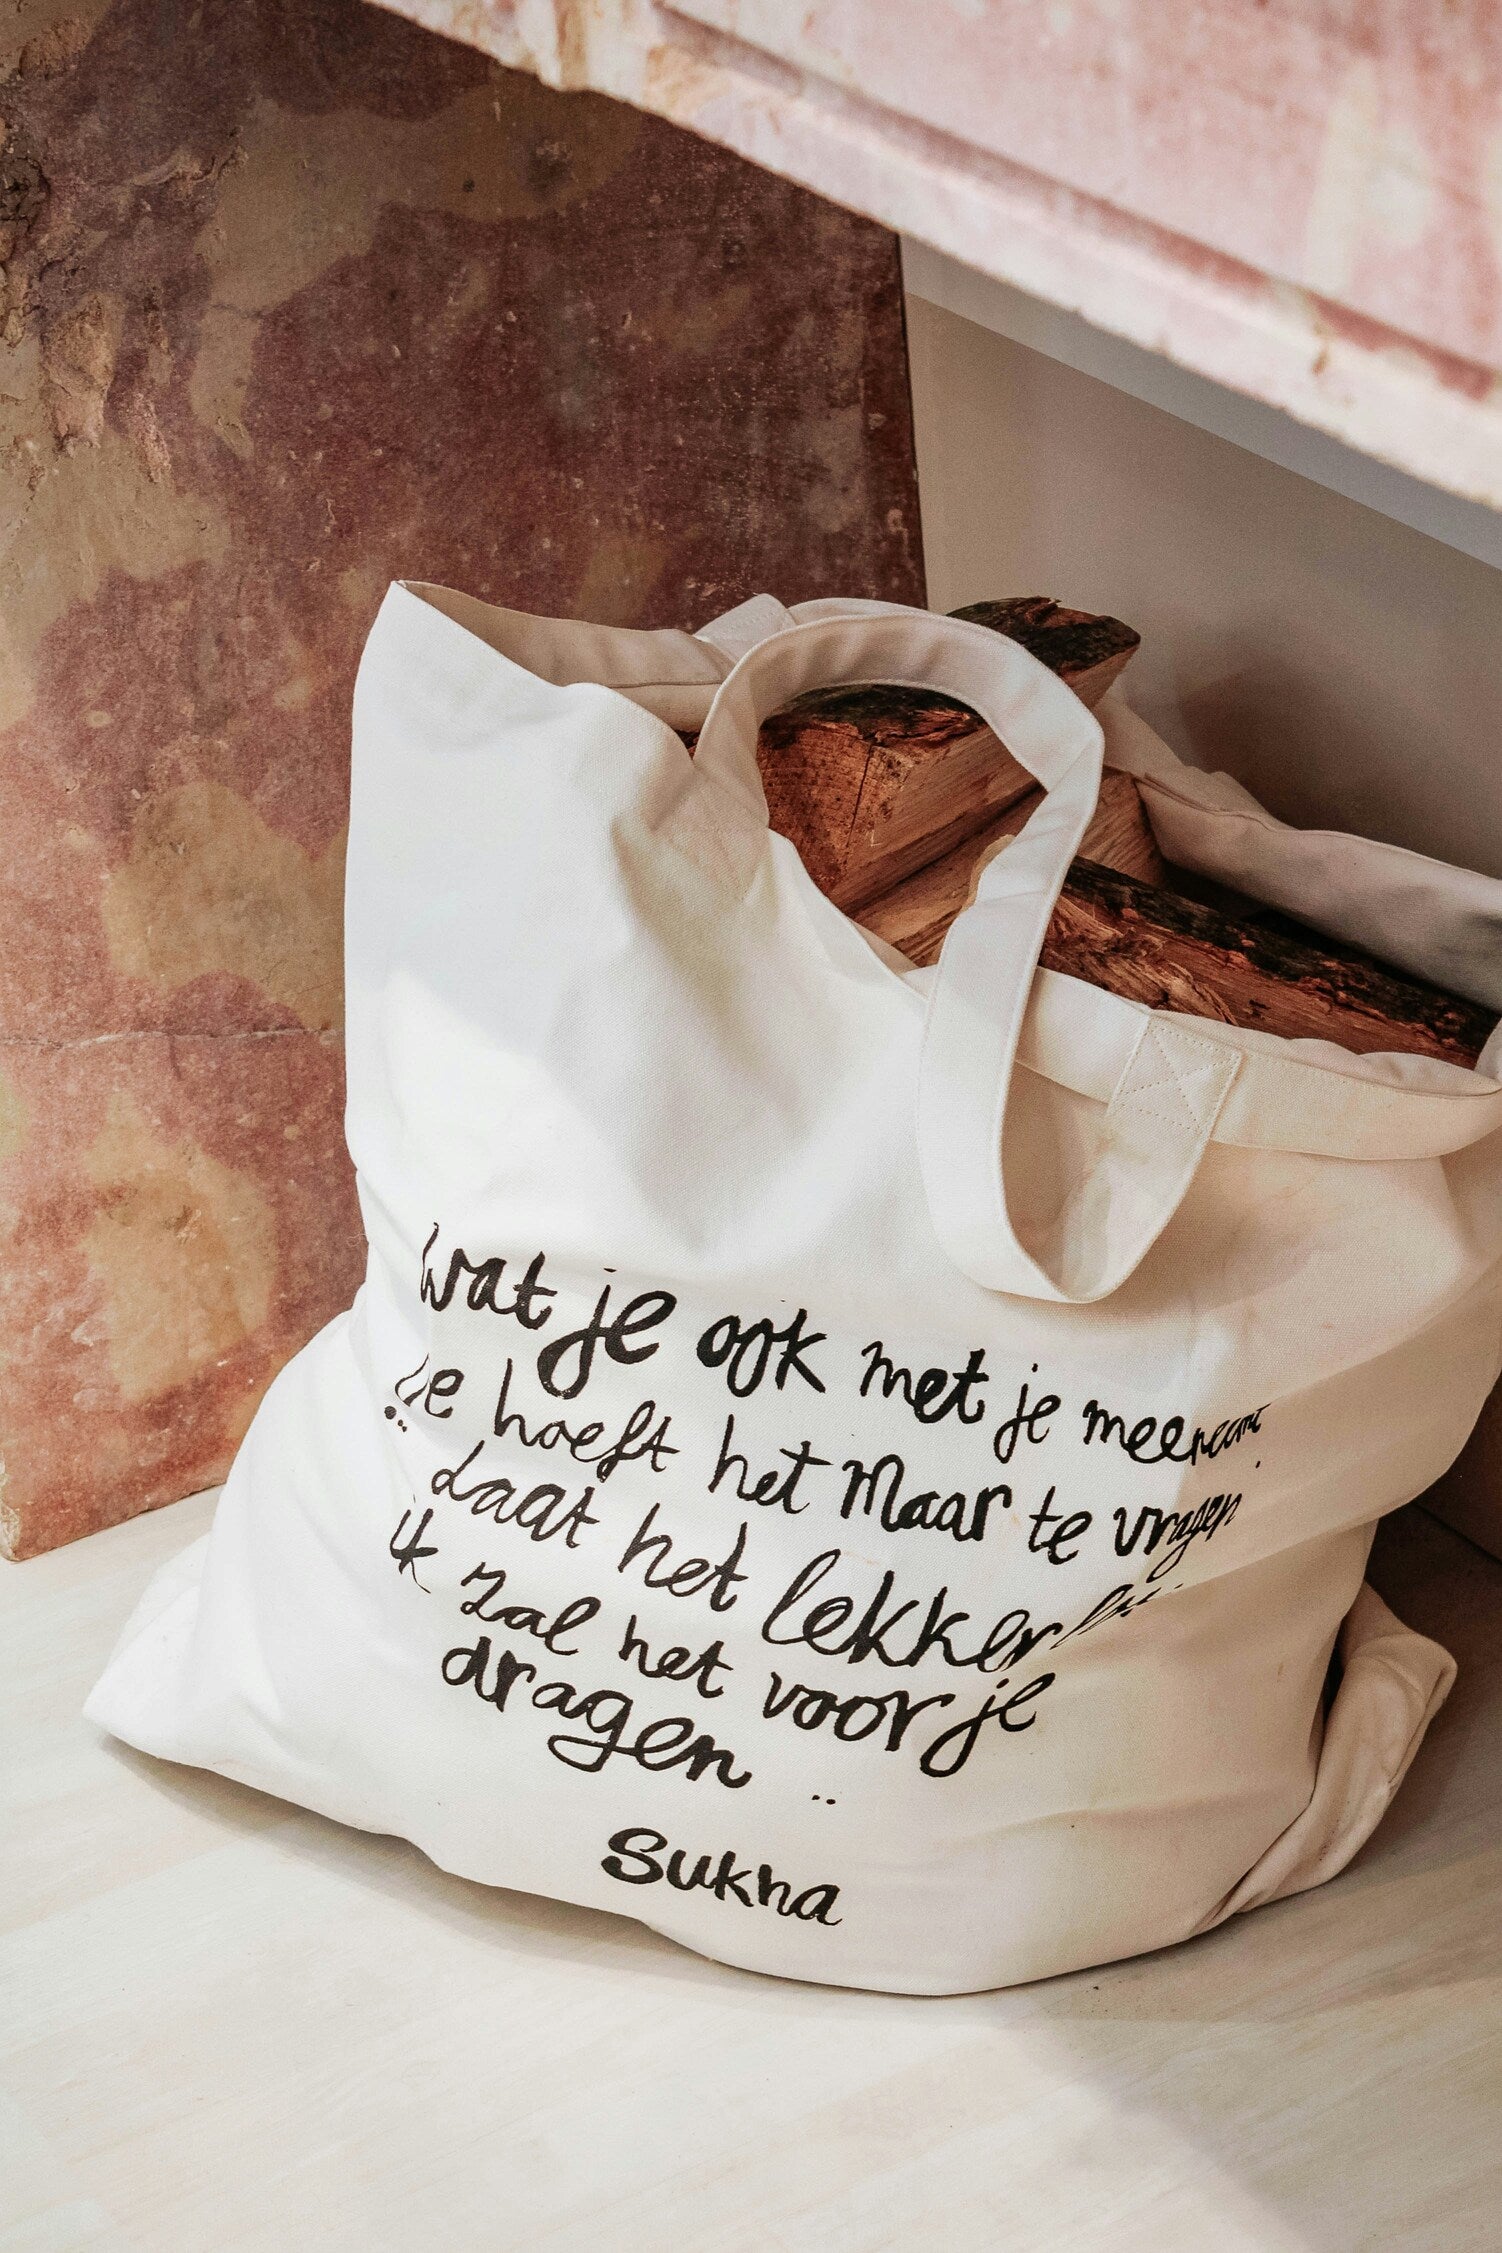 wat je ook met je meeneemt
je hoeft het maar te vragen
Laat het lekker
ik zal het voor je
dragen ..
Sukha